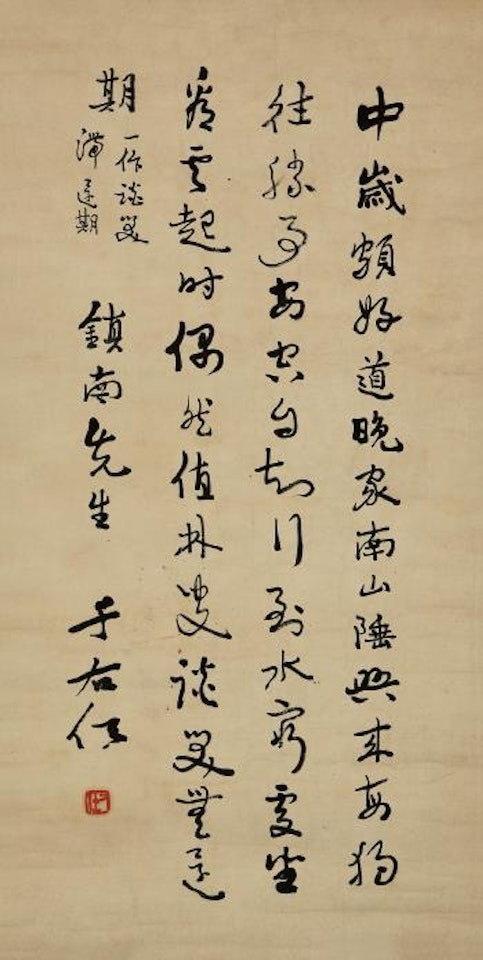 中歲頗好道晚家南山陲興來每獨
往勝事空自知行到水窮處坐
看雲起時偶然值林叟談笑無還
期
一作談笑
滯還期
鎮南先生
于右任